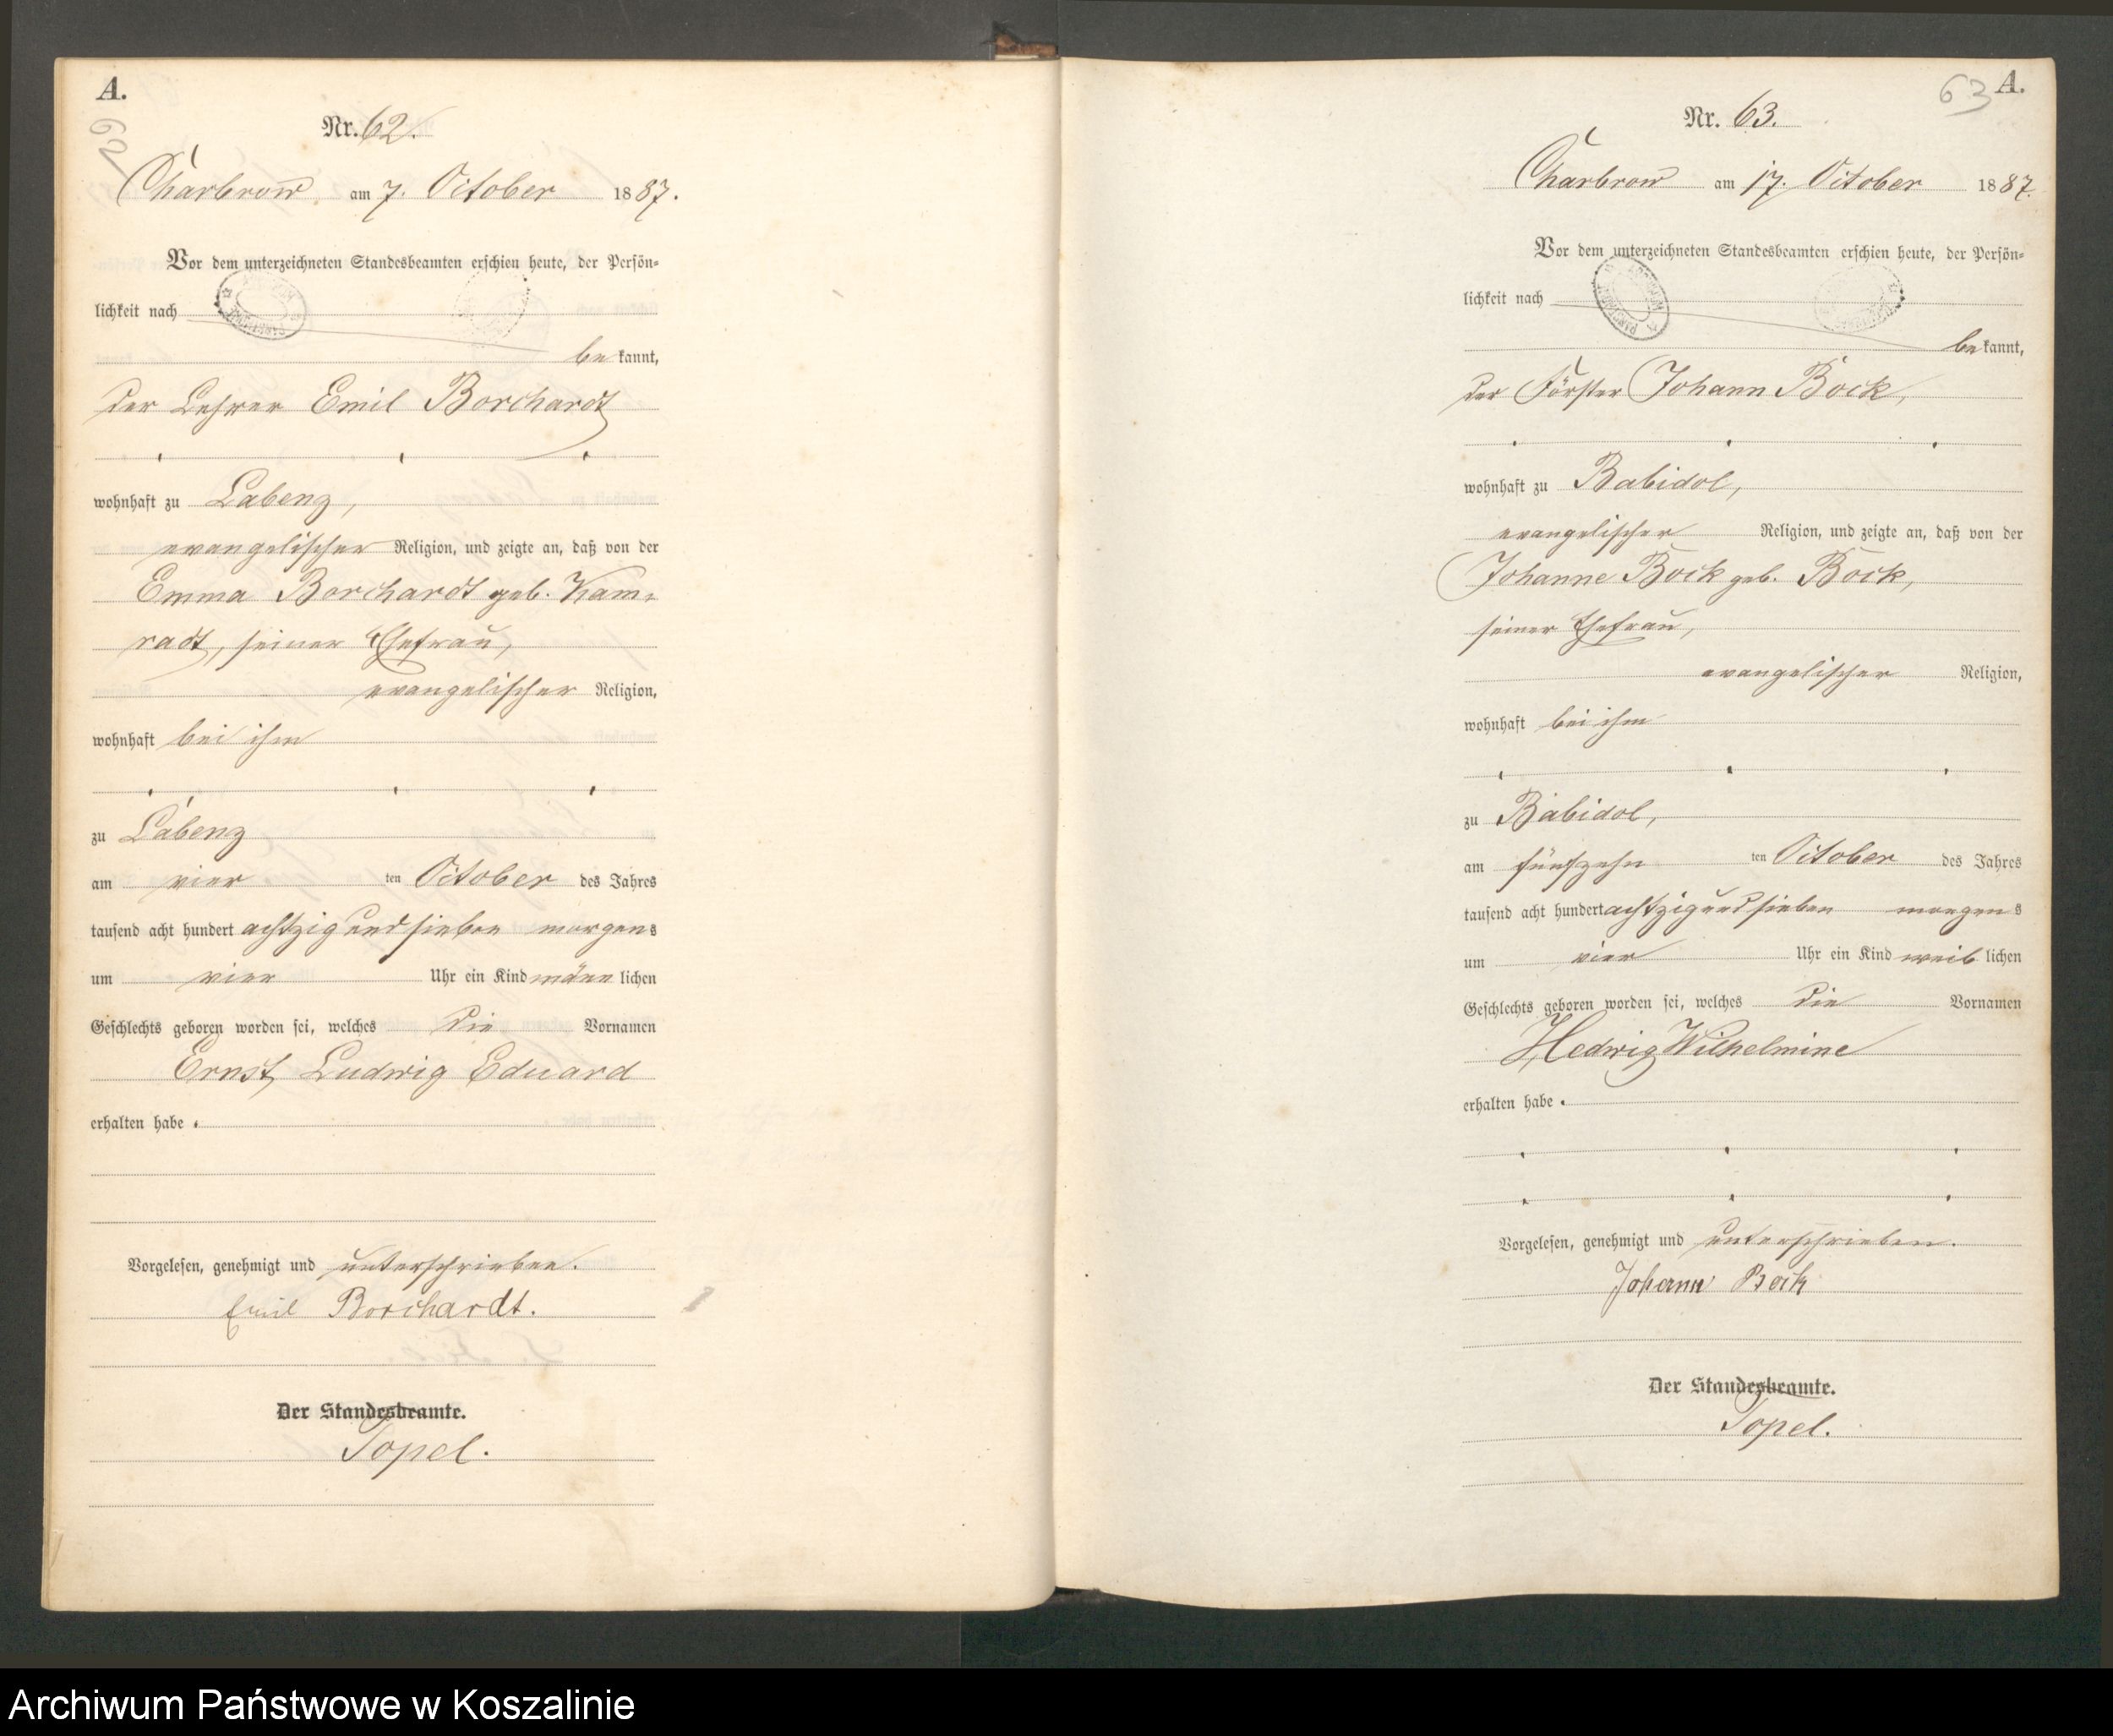 A.
62
Nr. 62.
Charbrow am 7. October 1887.
Vor dem unterzeichneten Standesbeamten erschien heute, der Persön-
lichkeit nach
be kannt,
der Lehrer Emil Borchardt
wohnhaft zu Labenz,
evangelischer Religion, und zeigte an, daß von der
Emma Borchardt geb. Kam-
radt, seiner Ehefrau,
evangelischer Religion,
wohnhaft bei ihm
zu Labenz
am vier ten October des Jahres
tausend acht hundert achtzig und sieben morgens
um vier Uhr ein Kind männ lichen
Geschlechts geboren worden sei, welches die Vornamen
Ernst Ludwig Eduard
erhalten habe.
Vorgelesen, genehmigt und unterschrieben.
Emil Borchardt.
Der Standesbeamte.
Topel.
63 A.
Nr. 63.
Charbrow am 17. October 1887.
Vor dem unterzeichneten Standesbeamten erschien heute, der Persön-
lichkeit nach
be kannt,
der Förster Johann Bock,
wohnhaft zu Babidol,
evangelischer Religion, und zeigte an, daß von der
Johanne Bock geb. Bock,
seiner Ehefrau,
evangelischer Religion,
wohnhaft bei ihm
zu Babidol,
am fünfzehn ten October des Jahres
tausend acht hundert achtzig und sieben morgens
um vier Uhr ein Kind weib lichen
Geschlechts geboren worden sei, welches die Vornamen
Hedwig Wilhelmine
erhalten habe.
Vorgelesen, genehmigt und unterschrieben.
Johann Bock
Der Standesbeamte.
Topel.
Archiwum Państwowe w Koszalinie